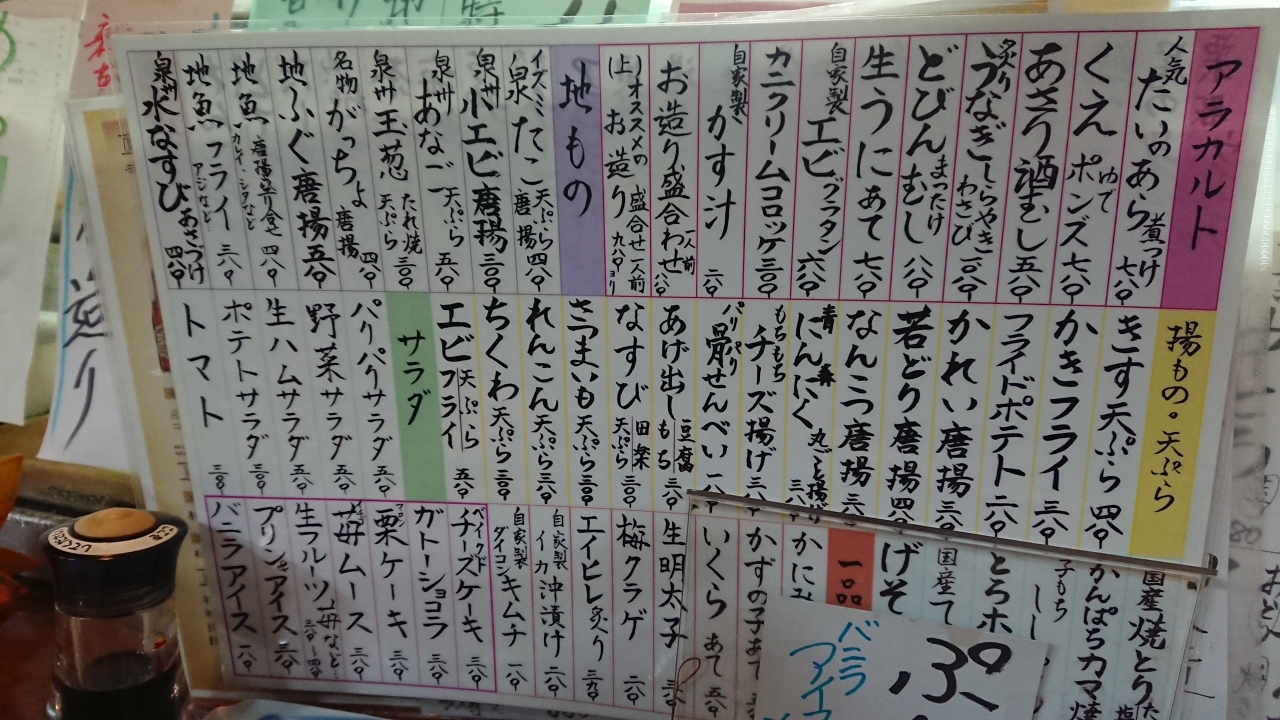 アラカルト
人気 たいのあら 煮つけ 七八〇
くえ ゆで ポンズ 七八〇
あさり酒むし 五八〇
炙り うなぎ しらやき わさび
どびんむし まつたけ 八八〇
生うに あて 七八〇
自家製 エビグラタン 六八〇
カニクリームコロッケ 三八〇
自家製 かす汁 二八〇
お造り盛合わせ 一人前
(上)オススメの お造り 盛合せ 一人前 九八〇より
地もの
イズミ 泉だこ 天ぷら 唐揚 四八〇
泉州 小エビ唐揚 三八〇
泉州 あなご 天ぷら 五八〇
泉州 玉葱 たれ焼 天ぷら 三八〇
名物 がっちょ 唐揚 四八〇
地ふぐ 唐揚 五八〇
地魚 唐揚盛り合せ 四八〇
地魚フライ アジなど 三八〇
泉州 水なすび あさづけ 四八〇
揚もの・天ぷら
きす天ぷら 四八〇
かきフライ 四八〇
フライドポテト 二八〇
かれい唐揚 三八〇
若どり唐揚 四八〇
なんこつ唐揚 三八〇
青森 にんにく 丸ごと揚げ 三八〇
もちもち チーズ揚げ 三八〇
パリパリ 骨せんべい 一八〇
あげ出し 豆腐 もち 三八〇
なすび 田楽 天ぷら 三八〇
さつまいも天ぷら 三八〇
れんこん天ぷら 三八〇
ちくわ天ぷら 三八〇
エビ 天ぷら フライ 五八〇
サラダ
パリパリサラダ 五八〇
野菜サラダ 五八〇
生ハムサラダ 五八〇
ポテトサラダ 三八〇
トマト 三八〇
国産 焼とり
かんぱちカマ焼
子もち し
とろホ
国産て
げそ
一品
かにみ
かずの子 あて
いくら あて 五八〇
生明太子 三八〇
梅クラゲ 二八〇
エイヒレ炙り 三八〇
自家製 イカ沖漬け 二八〇
自家製 ダイコンキムチ 一八〇
ベイクド チーズケーキ 三八〇
ガトーショコラ 三八〇
栗ケーキ 三八〇
苺ムース 三八〇
生フルーツ 苺など
プリンアイス 三八〇
バニラアイス 一八〇
ぷ
バニラ
アイス
造り